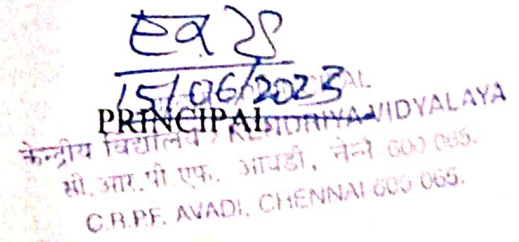 15/06/2023
PRINCIPAL
केन्द्रीय विद्यालय / KENDRIYA VIDYALAYA
सी.आर.पी.एफ. आवडी, चेन्नै 600 065.
C.R.P.F. AVADI, CHENNAI 600 065.